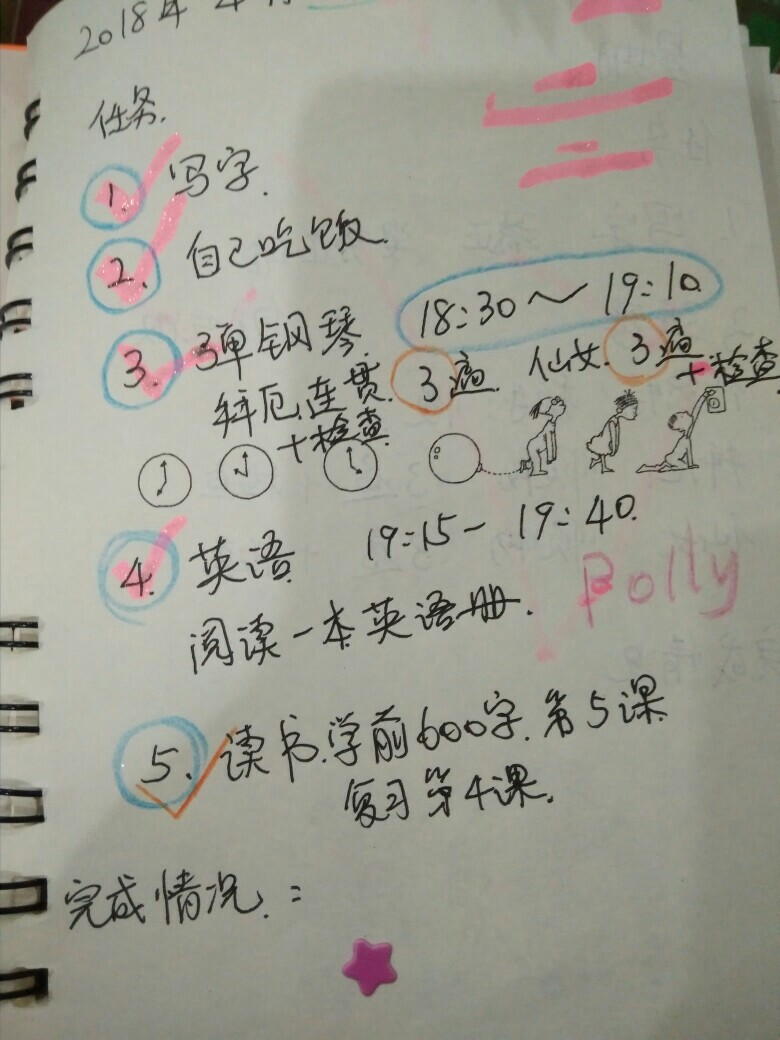 2018年4月
任务.
1. 写字.
2. 自己吃饭.
3. 弹钢琴. 18:30～19:10
连贯. 3遍. 仙女. 3遍
+检查 +检查
4. 英语 19:15-19:40.
阅读一本英语册. Polly
5. 读书.学前600字.第5课
复习第4课.
完成情况.: